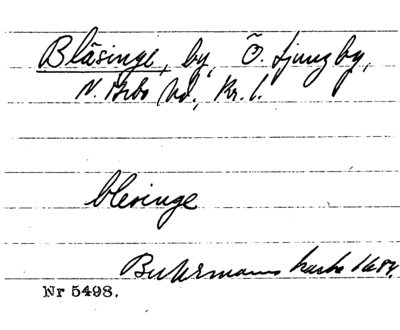 Bläsinge, by, Ö. Ljungby,
N. Åsbo hd., Kr. l.
blesinge
Buhrmanns karta 1684
Nr 5498.